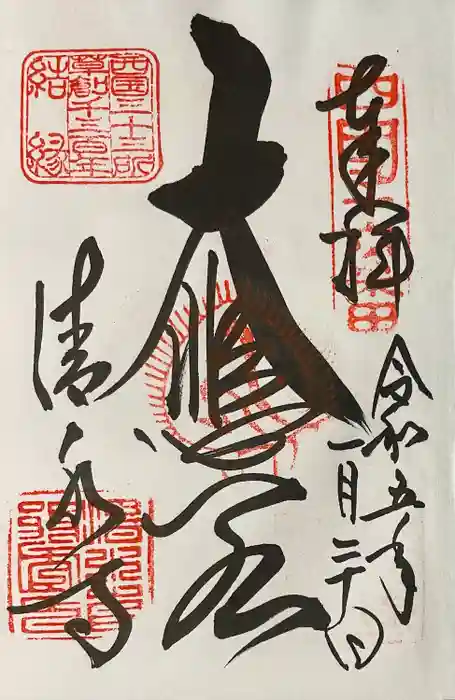 奉拝
令和五年
一月二十日
大悲閣
西国三十三所
草創千三百年
結縁
清水寺